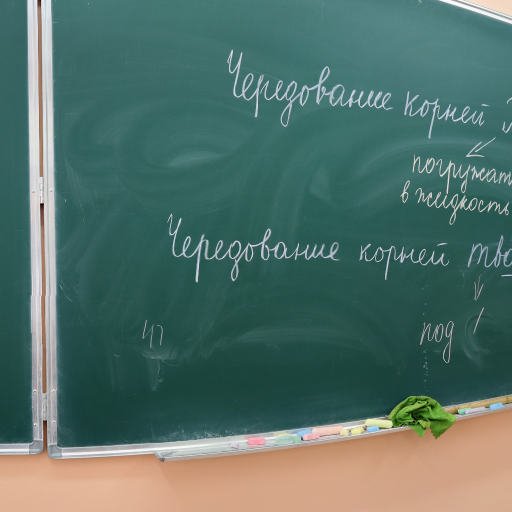 Чередование корней
погружат
в жидкость
Чередование корней тва
под